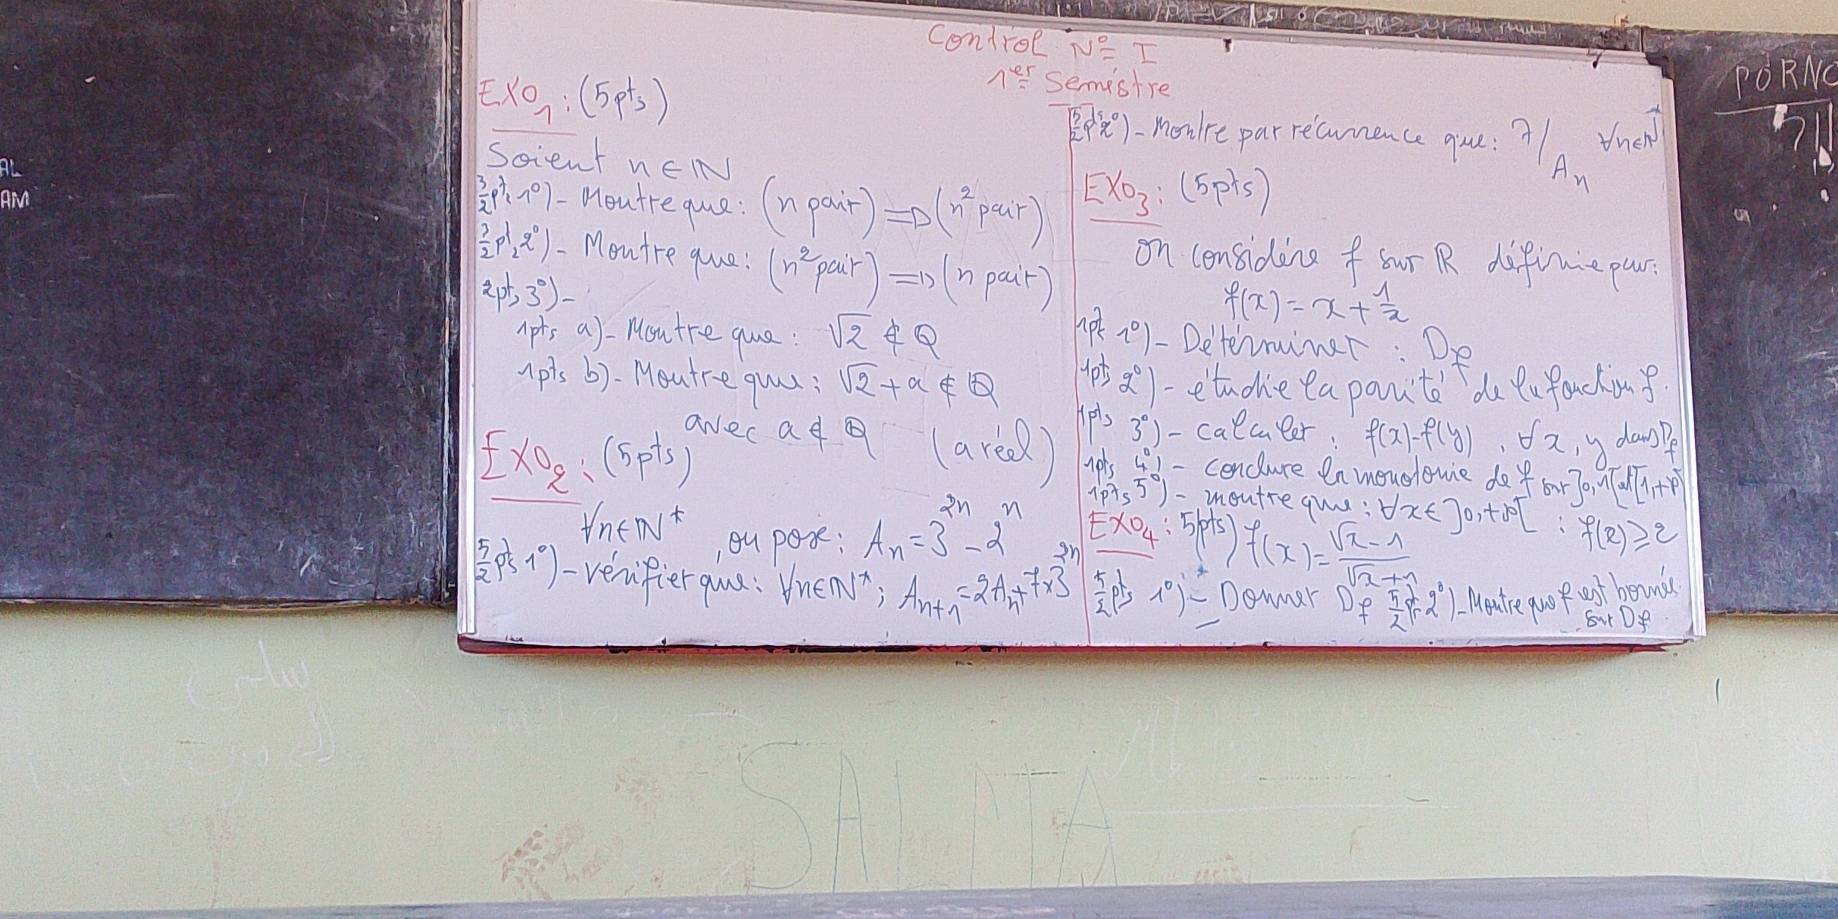 Control N° I
1er Semèstre
EXO1 : (5pts)
Soient n ∈ ℕ
3/2pts 1°) - Montre que : (n pair) ⇒ (n² pair)
3/2pts 2°) - Montre que : (n² pair) ⇒ (n pair)
2pts 3°) -
1pts a) - Montre que : √2 ∉ ℚ
1pts b) - Montre que : √2 + a ∉ ℚ
avec a ∉ ℚ (a réel)
EXO2 : (5pts)
∀n∈ℕ*, on pose : An = 3^2n - 2^n
5/2pts 1°) - vérifier que : ∀n∈ℕ* ; An+1 = 2An + 7×3^2n
5/2pts 2°) - Montre par récurrence que : 7/An ∀n∈ℕ*
EXO3 : (5pts)
on considère f sur ℝ définie par :
f(x) = x + 1/x
1pts 1°) - Déterminer : Df
1pts 2°) - étudie la parité de la fonction f.
1pts 3°) - calculer : f(x)-f(y), ∀x, y dans Df
1pts 4°) - conclure la monotonie de f sur ]0,1[ et [1,+∞[
1pts 5°) - montre que : ∀x∈]0,+∞[ : f(x) ≥ 2
EXO4 : 5pts) f(x) = √x - 1 / √x + 1
5/2pts 1°) - Donner Df 5/2pts 2°) - Montre que f est bornée
sur Df
PORNO
?!!
AL
AM
SALMA